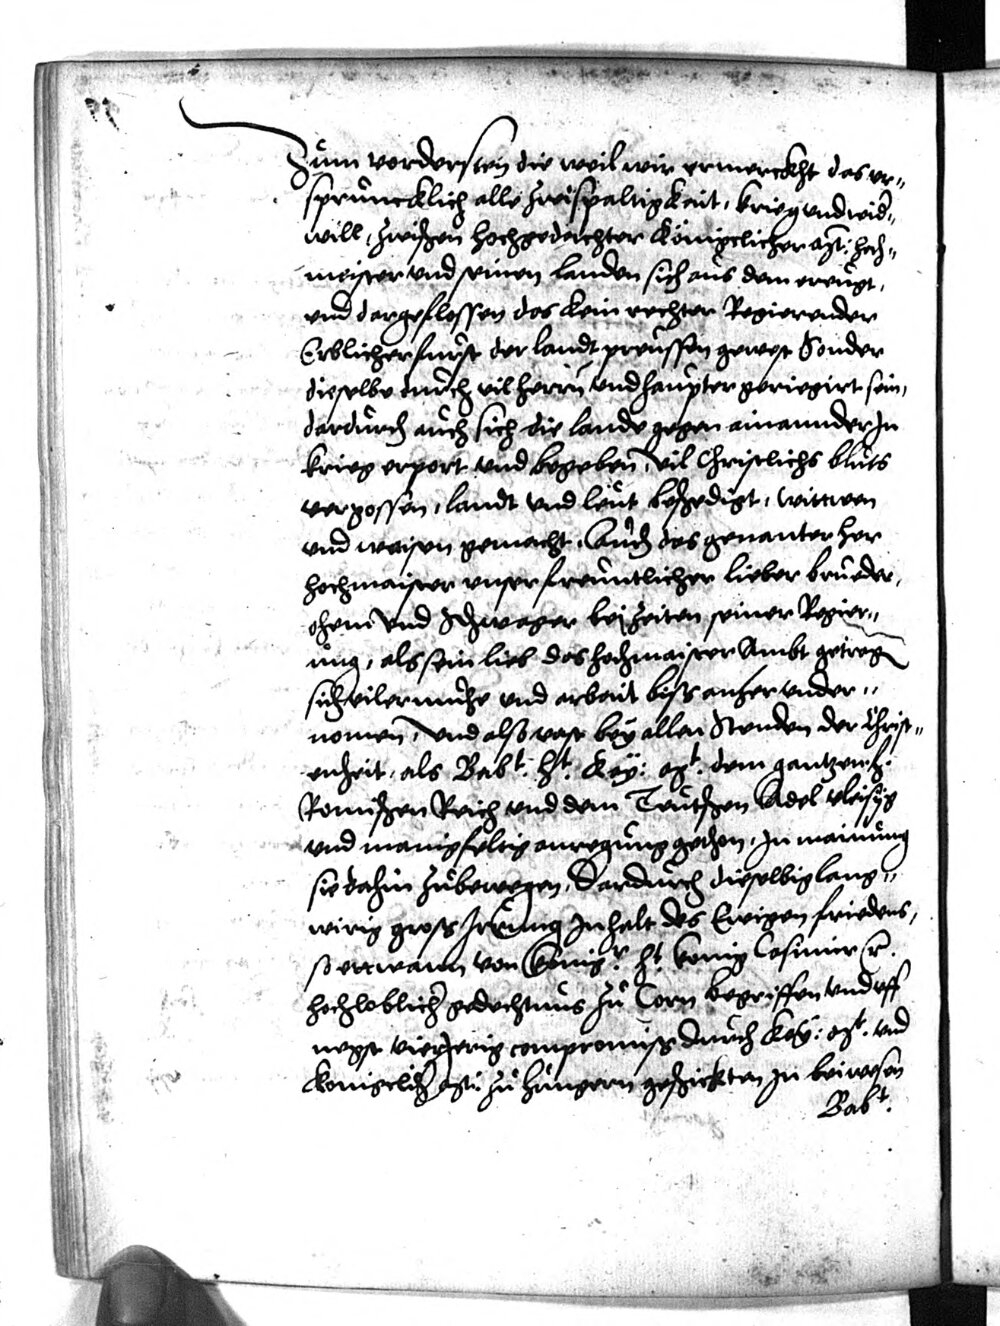 Zum vordersten die weil wir ermerckht das ur„
sprüncklich alle zwispaltigkait, krieg und wid„
will, zwischen hochgedachter Königclicher Mt: hoch„
meister und seinen landen sich aus dem ereugt,
und dargeflossen das kein rechter Regierender
Erblicher furst der landt preussen gewest Sonder
dieselbe durch vil herrn und haupter geriegirt sein,
dardurch auch sich die lande gegen ainannder In
krieg erport und begeben, vil Christlichs bluts
vergossen, landt und leut beschedigt, wittwen
und waisen gemacht, Auch das genanter her
hochmaister unser freuntlicher lieber brueder,
ohem und Schwager bei zeiten seiner Regier„
ung, als sein lieb des hochmaister Ambt getreg
sich viler muhe und arbeit biss anher under„
nomen, und also vast bey allen Stenden der Christ„
enheit, als Babt. ht. Kay: Mt. dem gantzen h.
Romischen Reich und dem Teutschen Adel vleisig
und manigfeltig anregung gethon, In mainung
sie dahin zubewegen, Dardurch dieselbig lang„
wirig gross Irrung Inhalt des Ewigen friedens,
so ettwann von König.r ht. konig Casimir
hochloblicher gedechtnus zu Torn begriffen und uff
negst vierjerig compromiss durch Kay: Mt. und
Konigclicher Mt: zu hungern geschickten In beiwesen
Babt.